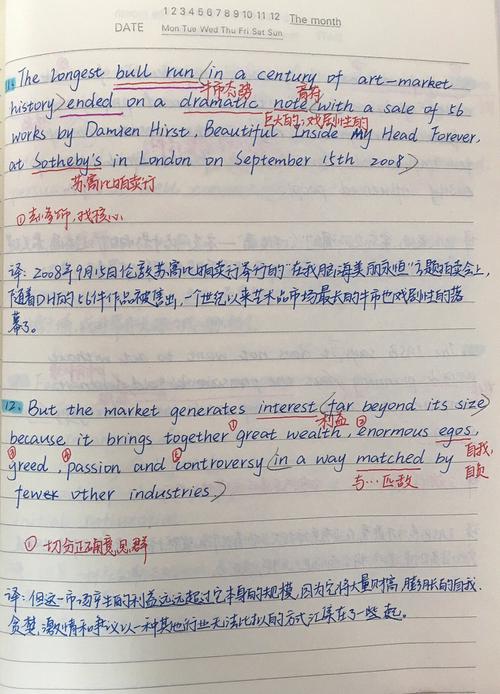 1 2 3 4 5 6 7 8 9 10 11 12 The month
DATE Mon Tue Wed Thu Fri Sat Sun
11. The longest bull run (in a century of art-market
牛市态势 音符
history) ended on a dramatic note (with a sale of 56
巨大的;戏剧性的
works by Damien Hirst, Beautiful Inside My Head Forever,
at Sotheby's in London on September 15th 2008)
苏富比拍卖行
① 去修饰,找核心
译: 2008年9月15日伦敦苏富比拍卖行举行的"在我脑海美丽永恒"主题拍卖会上,
随着DH的56件作品被售出,一个世纪以来艺术品市场最大的牛市也戏剧性的落
幕了。
12. But the market generates interest (far beyond its size)
利益
because it brings together ① great wealth, ② enormous egos,
③ ④ ⑤ 自我,
greed, passion and controversy (in a way matched by
自负
与…匹敌
few other industries)
① 切分正确意见群
译: 但这一市场产生的利益远远超过它本身的规模,因为它将大量财富,膨胀的自我,
贪婪,激情和争议以一种其他行业无法比拟的方式汇集在了一些起。